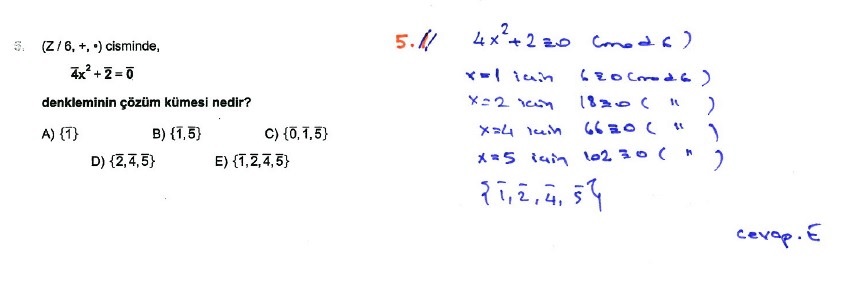 5. (Z / 6, +, •) cisminde,
4̅x² + 2̅ = 0̅
denkleminin çözüm kümesi nedir?
A) {1̅} B) {1̅, 5̅} C) {0̅, 1̅, 5̅}
D) {2̅, 4̅, 5̅} E) {1̅, 2̅, 4̅, 5̅}
5. 4x² + 2 ≡ 0 (mod 6)
x=1 için 6≡0 (mod 6)
x=2 için 18≡0 ( " )
x=4 için 66≡0 ( " )
x=5 için 102≡0 ( " )
{1̅, 2̅, 4̅, 5̅}
cevap. E